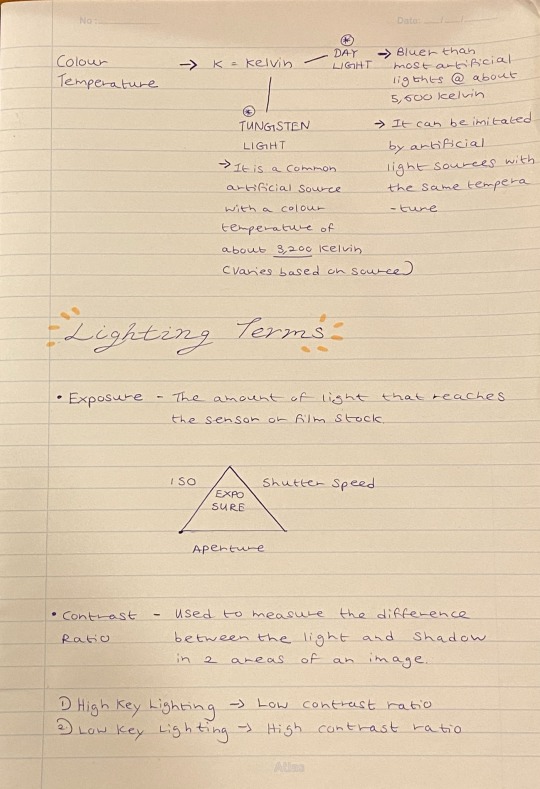 No :
Date: __/__/__
Colour Temperature → K = Kelvin
* DAY LIGHT
→ Bluer than
most artificial
lighths @ about
5,600 Kelvin
→ It can be imitated
by artificial
light sources with
the same tempera
-ture
* TUNGSTEN
LIGHT
→ It is a common
artificial source
with a colour
temperature of
about 3,200 Kelvin
(varies based on source)
Lighting Terms
• Exposure - The amount of light that reaches
the sensor or film stock.
ISO
Shutter Speed
EXPO
SURE
Aperture
• Contrast - Used to measure the difference
Ratio between the light and shadow
in 2 areas of an image.
1) High Key Lighting → Low contrast ratio
2) Low Key Lighting → High contrast ratio
Atlas